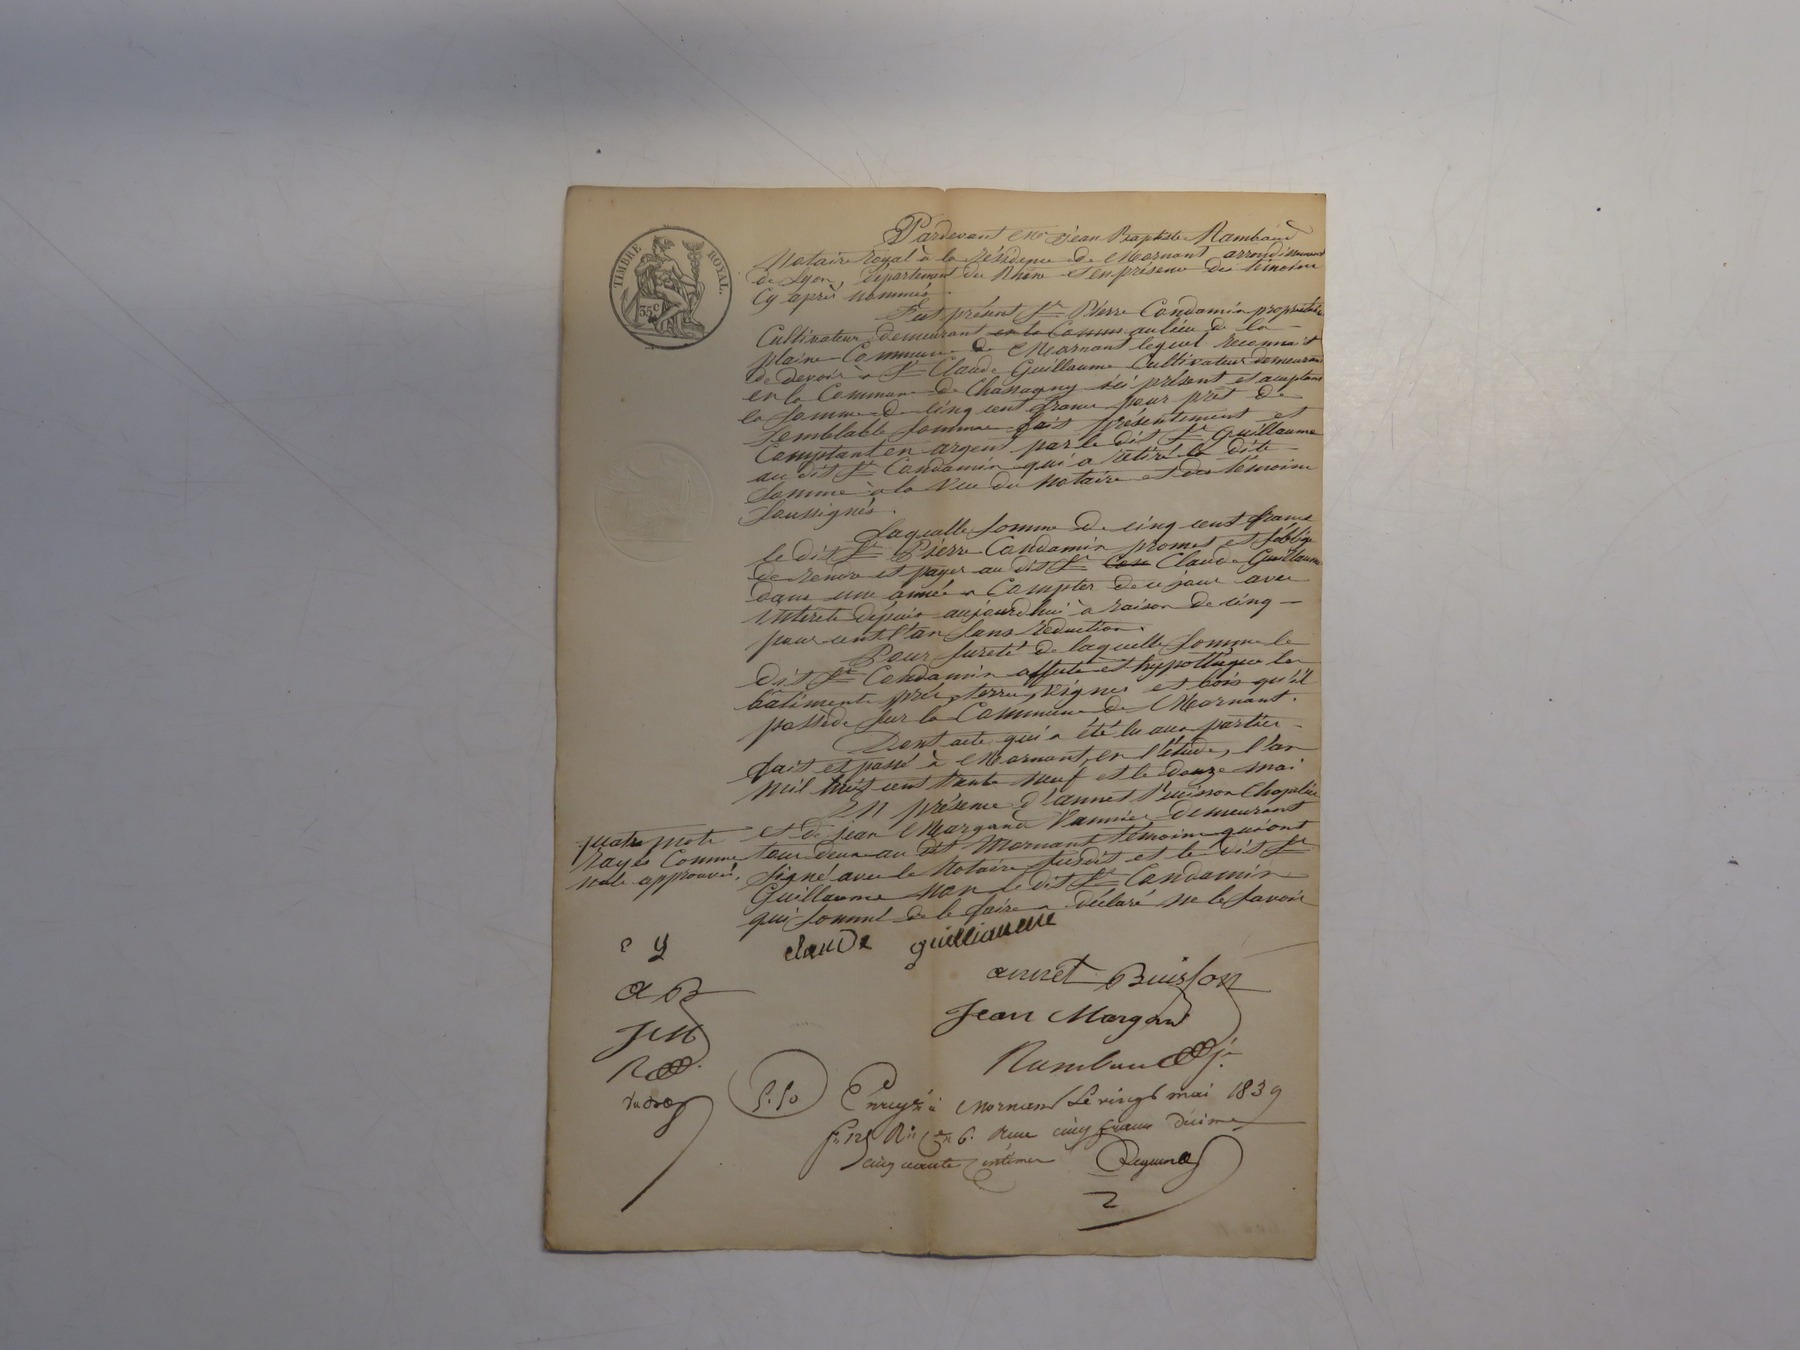 TIMBRE ROYAL.
35c
Pardevant Me Jean Baptiste Rambaud
Notaire royal à la résidence de Mornant arrondissement
de Lyon, département du Rhône et en présence des témoins
cy après nommés.
Fut présent Sr Pierre Condamin propriétaire
Cultivateur demeurant en la Comm. au lieu de la
plaine Commune de Mornant lequel reconnait
de devoir à Sr Claude Guillaume Cultivateur demeurant
en la Commune de Chassagny ici présent et acceptant
la somme de cinq cent francs pour prêt de
semblable somme fait présentement et
Comptant en argent par le dit Sr Guillaume
au dit Sr Condamin qui a retiré la dite
somme à la vue du Notaire et des témoins
soussignés.
Laquelle somme de cinq cent francs
le dit Sr Pierre Condamin promet et s'oblige
de rendre et payer au dit Sr Con Claude Guillaume
dans une année à Compter de ce jour avec
intérêts depuis aujourd'hui à raison de cinq
pour cent l'an sans réduction.
Pour sureté de laquelle somme le
dit Sr Condamin affecte et hypothèque les
bâtiments, prés, terres, vignes et bois qu'il
possède sur la Commune de Mornant.
Dont acte qui a été lu aux parties
fait et passé à Mornant, en l'étude, l'an
mil huit cent trente neuf et le douze mai
En présence d'annet Buisson Chapelier
et de Jean Margand Vannier demeurant
tous deux au dit Mornant témoins qui ont
signé avec le Notaire susdit et le dit Sr
Guillaume non le dit Sr Condamin
qui sommé de le faire a déclaré ne le savoir
quatre mots
rayés Comme
nuls approuvés.
claude guilliaume
c g
annet Buisson
a B
Jean Margand
J M
Rambaud
R
5.50
Enregé à Mornant le vingt mai 1839
fo 125 Ro Ce 6. Reçu cinq francs décime
cinquante centimes